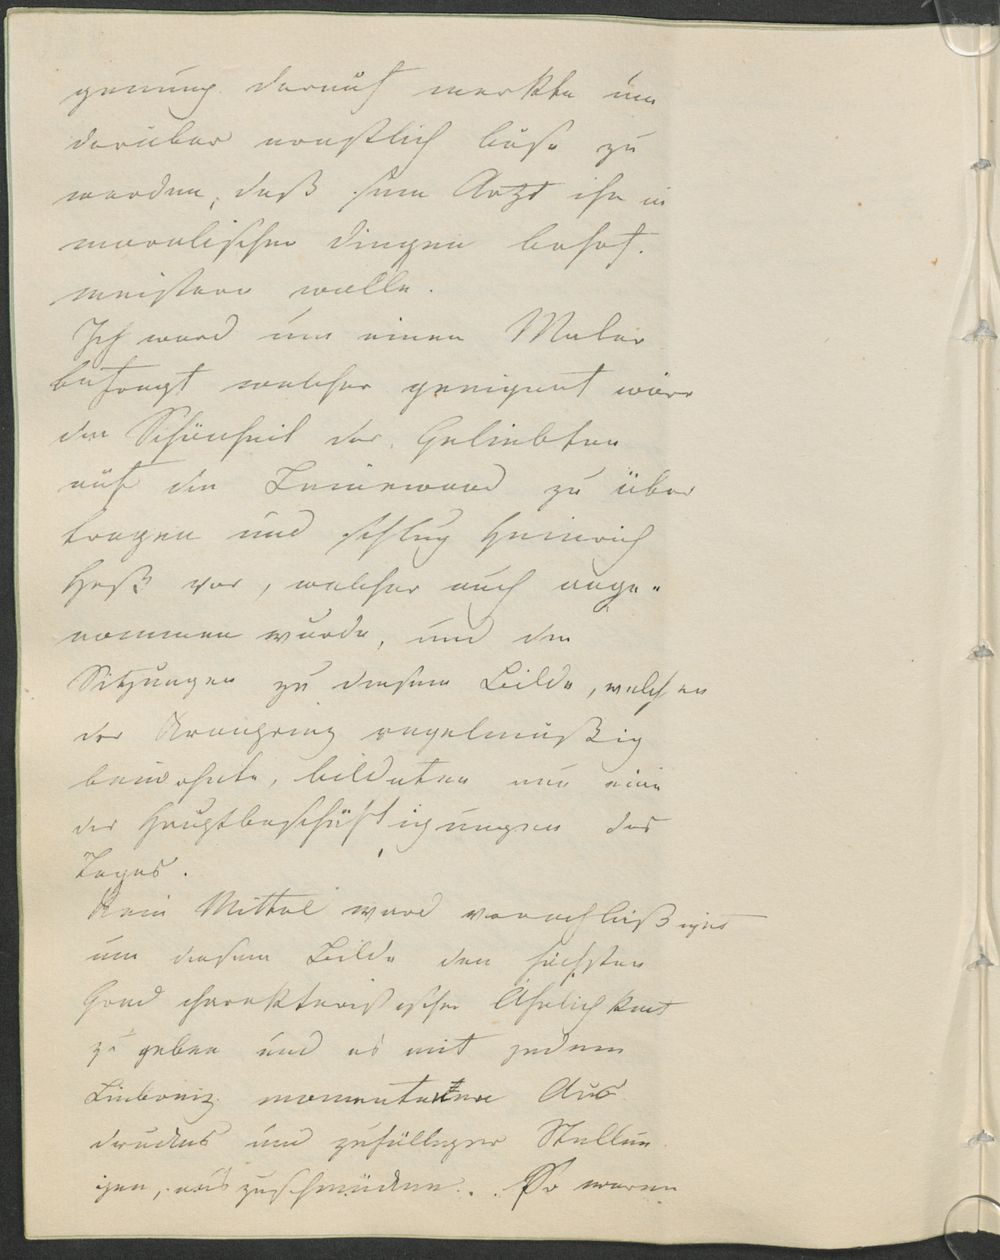 genung darauf merkte um
darüber ernstlich böse zu
werden, daß sein Arzt ihn in
moralischen Dingen behof-
meistern wolle.
Ich ward um einen Maler
befragt welcher geeignet wäre
die Schönheit der Geliebten
auf die Leinewand zu über
tragen und schlug Heinrich
Heß vor, welcher auch ange-
nommen wurde, und die
Sitzungen zu diesem Bilde, welchen
der Kronprinz regelmäßig
beiwohnte, bildeten nun eine
der Hauptbeschäftigungen des
Tages.
Kein Mittel ward vernachläßigt
um diesem Bilde den höchsten
Grad charakteristischer Ähnlichkeit
zu geben und es mit jedem
Liebreiz momentanen Aus
druckes und zufälliger Stellun
gen, auszuschmücken. So waren